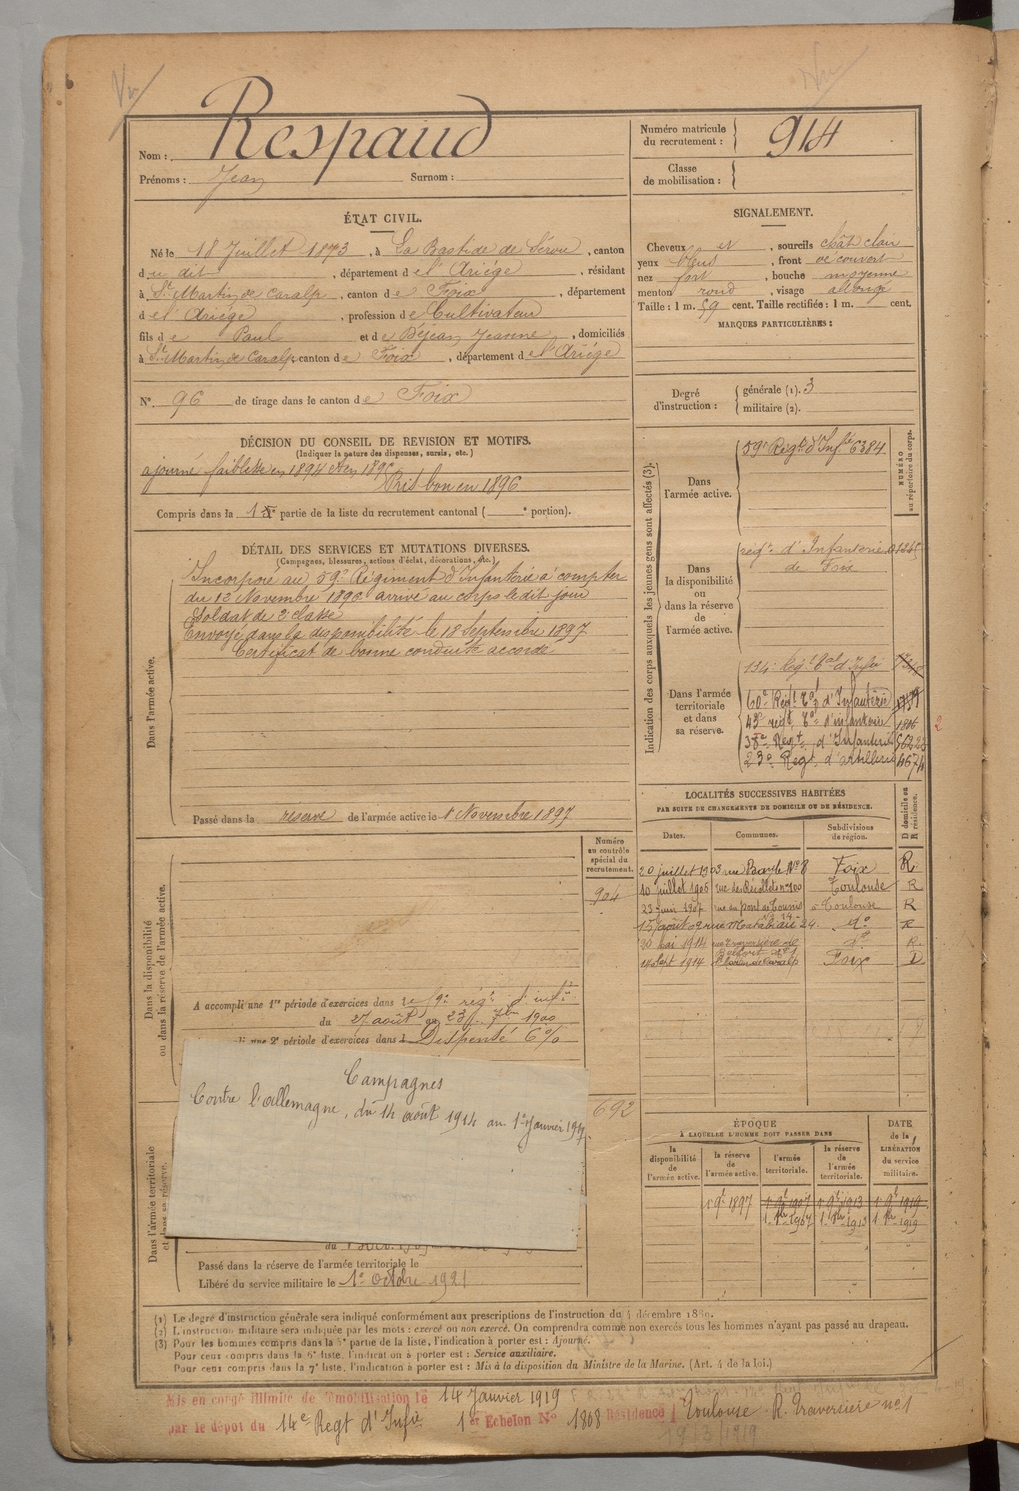 Respaud
Nom :
Prénoms : Jean Surnom :
Numéro matricule du recrutement : 914
Classe de mobilisation :
ÉTAT CIVIL.
Né le 18 Juillet 1873, à La Bastide de Sérou, canton
du dit, département de l'Ariège, résidant
à St Martin de Caralp, canton de Foix, département
de l'Ariège, profession de Cultivateur
fils de Paul et de Béjean Jeanne, domiciliés
à St Martin de Caralp canton de Foix, département de l'Ariège
N° 96 de tirage dans le canton de Foix
SIGNALEMENT.
Cheveux et, sourcils chât clair
yeux bleus, front découvert
nez fort, bouche moyenne
menton rond, visage allongé
Taille : 1 m. 59 cent. Taille rectifiée : 1 m. cent.
MARQUES PARTICULIÈRES :
Degré d'instruction : générale (1). 3
militaire (2).
DÉCISION DU CONSEIL DE REVISION ET MOTIFS.
(Indiquer la nature des dispenses, sursis, etc.)
ajourné faiblesse en 1894 et en 1895
Pris bon en 1896
Compris dans la 1e partie de la liste du recrutement cantonal ( e portion).
DÉTAIL DES SERVICES ET MUTATIONS DIVERSES.
(Campagnes, blessures, actions d'éclat, décorations, etc.)
Dans l'armée active.
Incorporé au 59e Régiment d'Infanterie à compter
du 12 Novembre 1896 arrivé au corps le dit jour
Soldat de 2e classe
Envoyé dans la disponibilité le 18 Septembre 1897
Certificat de bonne conduite accordé
Passé dans la réserve de l'armée active le 1 Novembre 1897
Indication des corps auxquels les jeunes gens sont affectés (3).
NUMÉRO au répertoire du corps.
Dans l'armée active.
59e Régt d'Infie 6384
Dans la disponibilité ou dans la réserve de l'armée active.
régt d'Infanterie
de Foix
Dans l'armée territoriale et dans sa réserve.
134e Régt Tal d'Infie
60e Régt Tal d'Infanterie
43e régt Tal d'infanterie 1816
38e Régt d'Infanterie
23e Régt d'artillerie
LOCALITÉS SUCCESSIVES HABITÉES
PAR SUITE DE CHANGEMENTS DE DOMICILE OU DE RÉSIDENCE.
Dates. Communes. Subdivisions de région. D domicile ou R résidence.
20 juillet 1903 rue Bayle N° 8 Foix R
10 juillet 1906 rue des Récollets n° 100 Toulouse R
23 juin 1907 rue du pont de Tounis Toulouse R
15 août 09 rue Matabiau 24 do R
30 mai 1914 rue Traversière de Belfort N° 1 do R
14 Sept 1914 St Martin de Caralp Foix D
Dans la disponibilité ou dans la réserve de l'armée active.
Numéro au contrôle spécial du recrutement.
904
A accompli une 1re période d'exercices dans le 59e rég. d'inf.
du 27 août au 23 7bre 1900
une 2e période d'exercices dans Dispensé 6%
Campagnes
Contre l'allemagne, du 14 août 1914 au 1er janvier 1917.
692
Dans l'armée territoriale et dans sa réserve.
Passé dans la réserve de l'armée territoriale le
Libéré du service militaire le 1er octobre 1921
ÉPOQUE
À LAQUELLE L'HOMME DOIT PASSER DANS
DATE de la LIBÉRATION du service militaire.
la disponibilité de l'armée active. la réserve de l'armée active. l'armée territoriale. la réserve de l'armée territoriale.
1 9bre 1897 1 9bre 1907 1 9bre 1913 1 9bre 1919
1 8bre 1907 1 8bre 1913 1 8bre 1919
(1) Le degré d'instruction générale sera indiqué conformément aux prescriptions de l'instruction du 4 décembre 1889.
(2) L'instruction militaire sera indiquée par les mots : exercé ou non exercé. On comprendra comme non exercés tous les hommes n'ayant pas passé au drapeau.
(3) Pour les hommes compris dans la 5e partie de la liste, l'indication à porter est : Ajourné.
Pour ceux compris dans la 6e liste, l'indication à porter est : Service auxiliaire.
Pour ceux compris dans la 7e liste, l'indication à porter est : Mis à la disposition du Ministre de la Marine. (Art. 4 de la loi.)
Mis en congé illimité de démobilisation le 14 Janvier 1919
par le dépôt du 14e Regt d'Infie 1er Echelon N° 1808 Résidence Toulouse R. Traversière n° 1
1913/1919